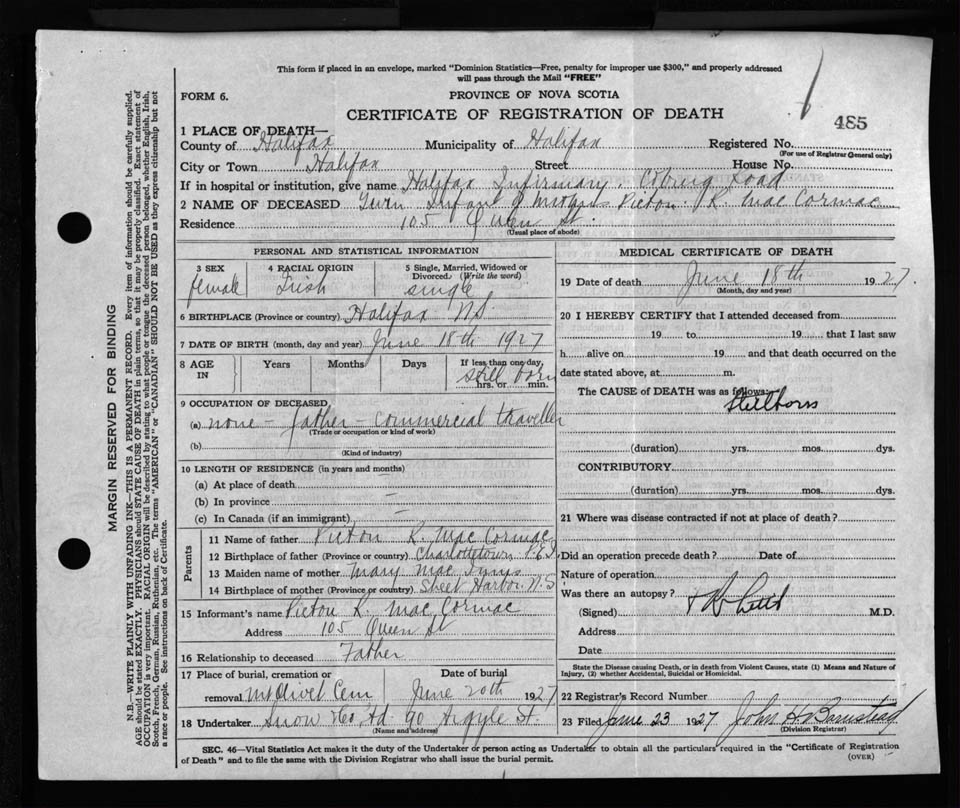 This form if placed in an envelope, marked "Dominion Statistics—Free, penalty for improper use $300," and properly addressed
will pass through the Mail "FREE"
FORM 6.
PROVINCE OF NOVA SCOTIA
CERTIFICATE OF REGISTRATION OF DEATH
485
1 PLACE OF DEATH—
County of Halifax Municipality of Halifax Registered No.
(For use of Registrar General only)
City or Town Halifax Street House No.
If in hospital or institution, give name Halifax Infirmary, Coburg Road
2 NAME OF DECEASED Twin Infant of Picton K. Mac Cormac
Residence 105 Queen St.
(Usual place of abode)
PERSONAL AND STATISTICAL INFORMATION
3 SEX 4 RACIAL ORIGIN 5 Single, Married, Widowed or Divorced. (Write the word)
female Irish single
6 BIRTHPLACE (Province or country) Halifax N.S.
7 DATE OF BIRTH (month, day and year) June 18th 1927
8 AGE IN Years Months Days If less than one day, hrs. or min.
still born
9 OCCUPATION OF DECEASED
(a) none - father - commercial traveller
(Trade or occupation or kind of work)
(b)
(Kind of industry)
10 LENGTH OF RESIDENCE (in years and months)
(a) At place of death
(b) In province —
(c) In Canada (if an immigrant) —
Parents
11 Name of father Picton K. Mac Cormac
12 Birthplace of father (Province or country) Charlottetown P.E.I.
13 Maiden name of mother Mary Mac Innis
14 Birthplace of mother (Province or country) Sheet Harbor N.S.
15 Informant's name Picton K. Mac Cormac
Address 105 Queen St
16 Relationship to deceased Father
17 Place of burial, cremation or removal Date of burial
Mt Olivet Cem June 20th 1927
18 Undertaker Snow & Co Ltd 90 Argyle St.
(Name and address)
MEDICAL CERTIFICATE OF DEATH
19 Date of death June 18th 1927
(Month, day and year)
20 I HEREBY CERTIFY that I attended deceased from
19 to 19 that I last saw
h alive on 19 and that death occurred on the
date stated above, at m.
The CAUSE of DEATH was as follows:
Stillborn
(duration) yrs. mos. dys.
CONTRIBUTORY
(duration) yrs. mos. dys.
21 Where was disease contracted if not at place of death?
Did an operation precede death? Date of
Nature of operation
Was there an autopsy?
(Signed) M.D.
Address
Date
State the Disease causing Death, or in death from Violent Causes, state (1) Means and Nature of
Injury, (2) whether Accidental, Suicidal or Homicidal.
22 Registrar's Record Number
23 Filed June 23 1927 John H Barnstead
(Division Registrar)
SEC. 46—Vital Statistics Act makes it the duty of the Undertaker or person acting as Undertaker to obtain all the particulars required in the "Certificate of Registration
of Death" and to file the same with the Division Registrar who shall issue the burial permit.
(OVER)
MARGIN RESERVED FOR BINDING
N.B.—WRITE PLAINLY WITH UNFADING INK—THIS IS A PERMANENT RECORD. Every item of information should be carefully supplied.
AGE should be stated EXACTLY. PHYSICIANS should STATE CAUSE OF DEATH in plain terms, so that it may be properly classified. Exact statement of
OCCUPATION is very important. RACIAL ORIGIN will be described by stating to what people or tongue the deceased person belonged, whether English, Irish,
Scotch, French, German, Russian, Ruthenian, etc. The terms "AMERICAN" or "CANADIAN" SHOULD NOT BE USED as they express citizenship but not
a race or people. See instructions on back of Certificate.